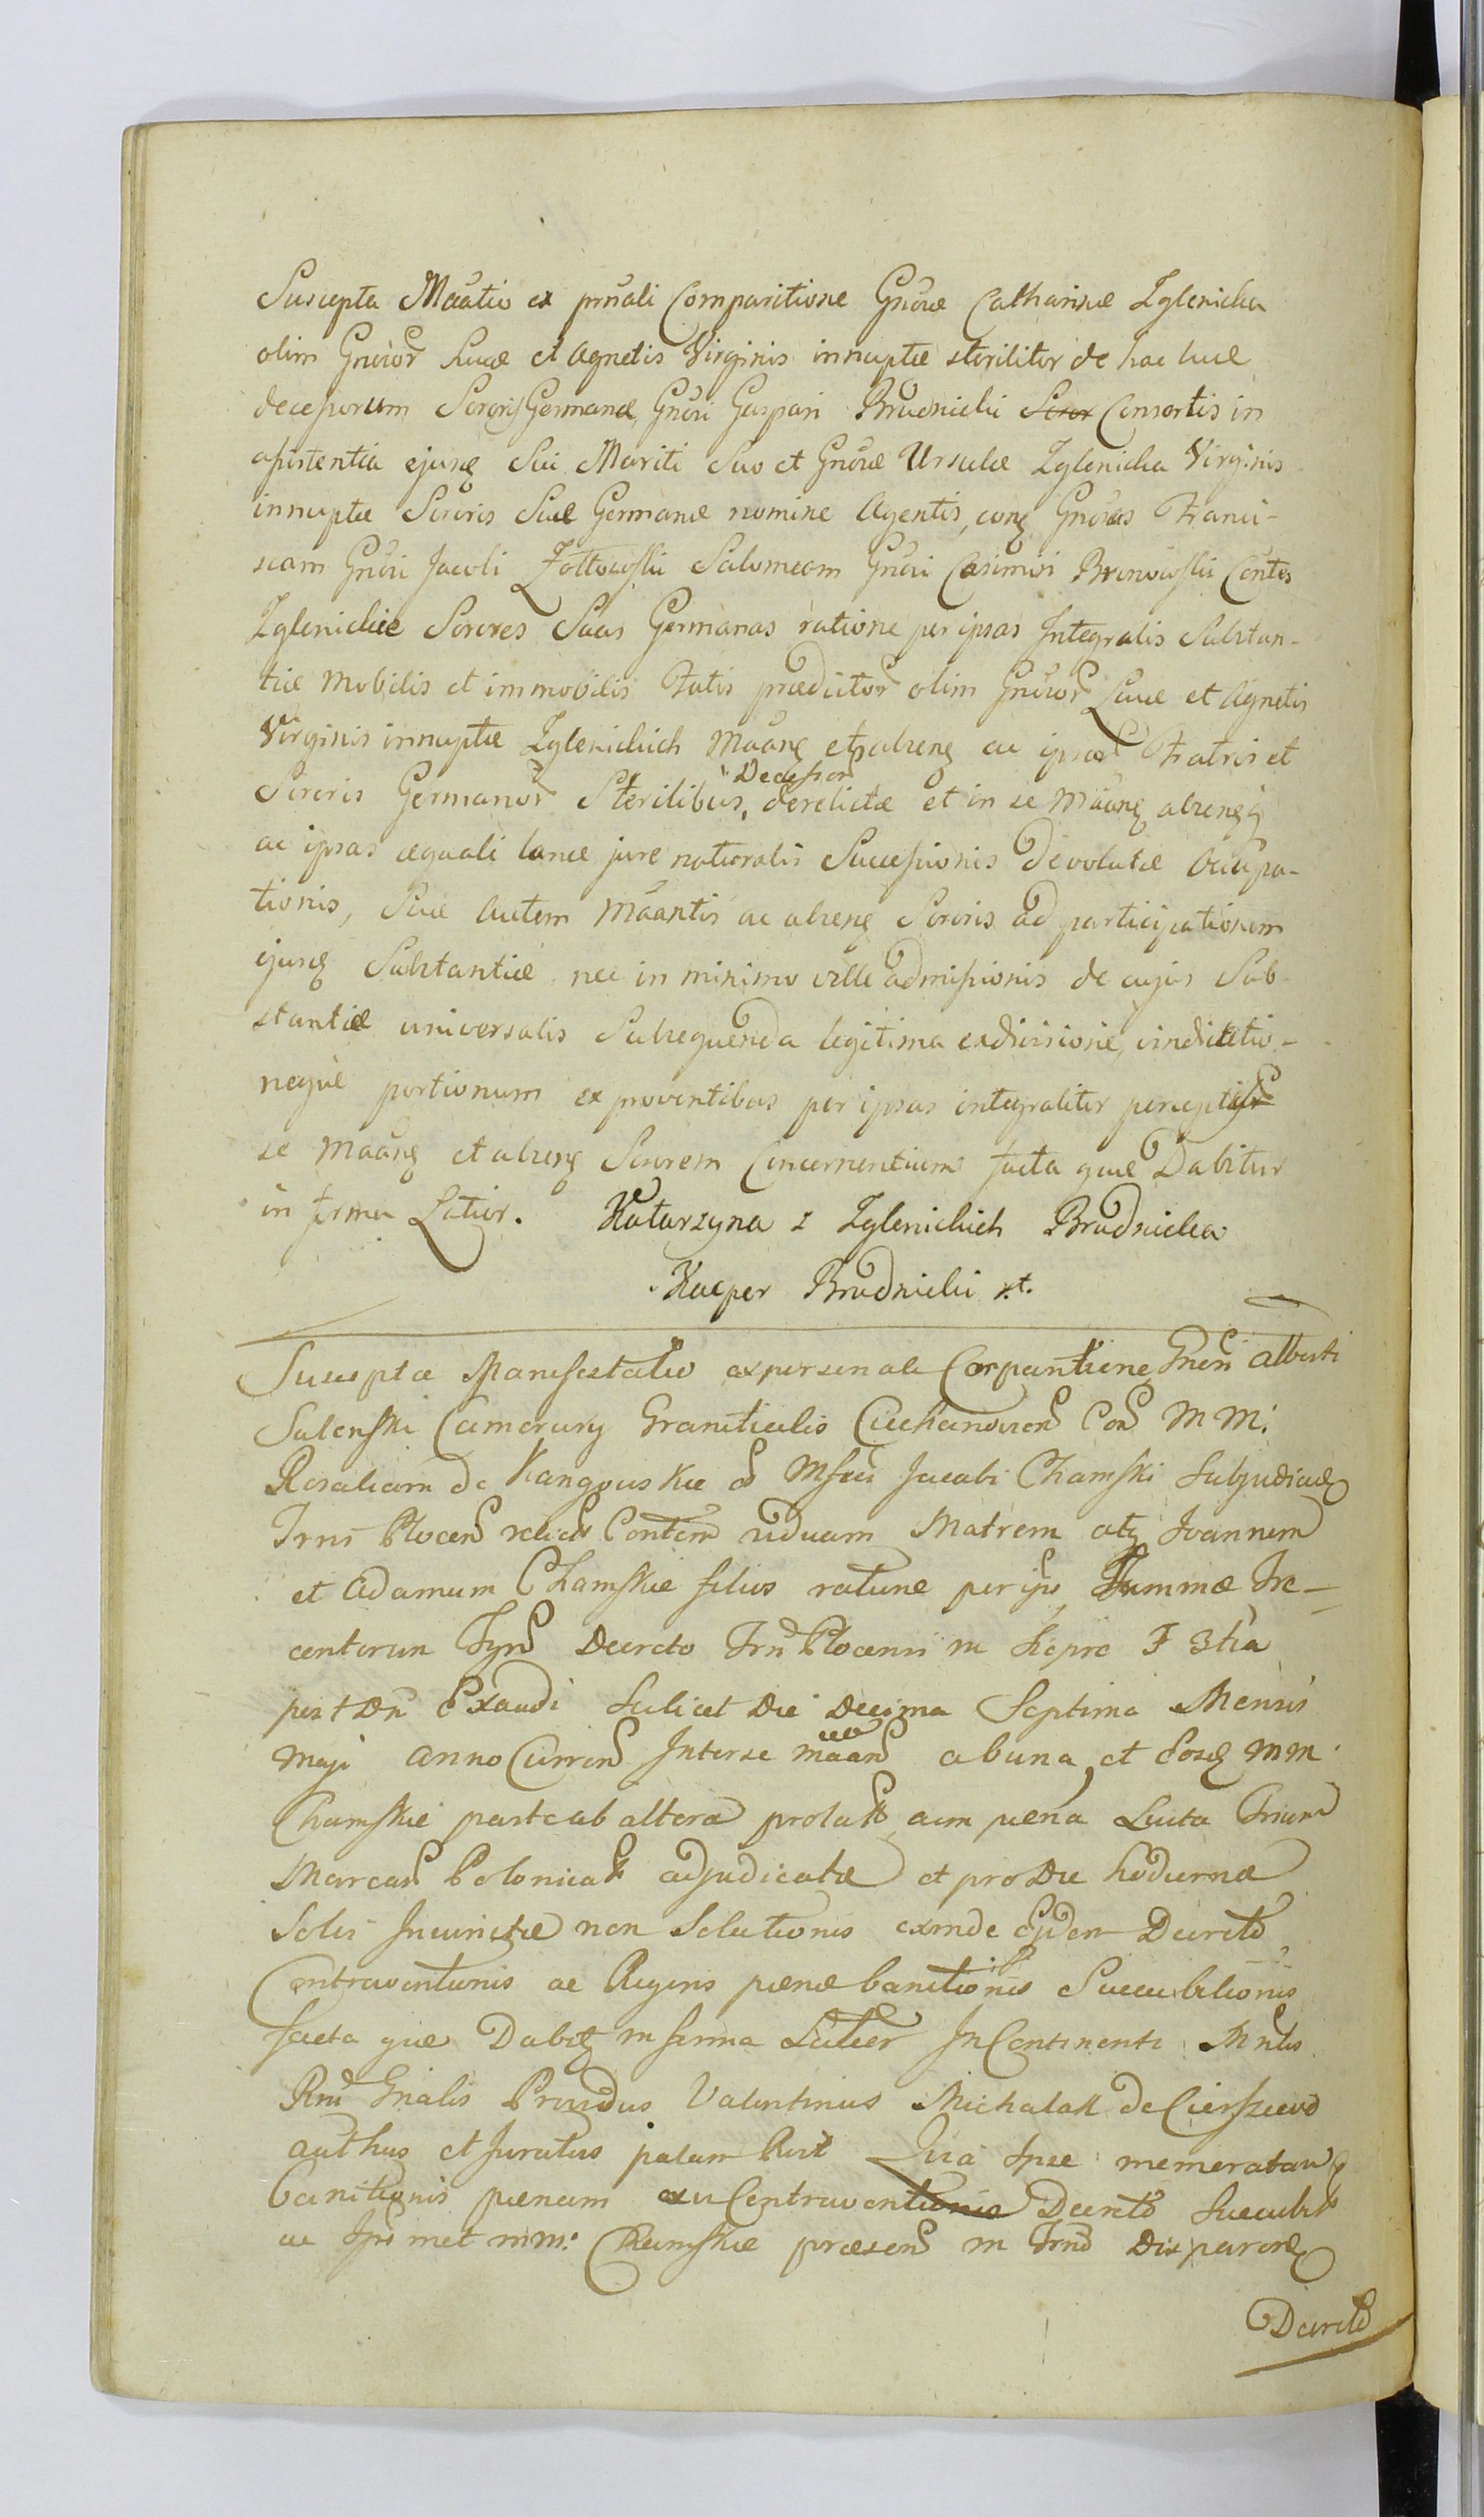 Suscepta Mãatio ex prnãli Comparitione Gnõræ Catharinæ Zglenicka
olim Gnõror Lucæ et Agnetis Virginis innuptæ steriliter de hac luce
decessorum Sororis Germanæ, Gnõri Gaspari Brudnicki Soror Consortis in
assistentia ejusq Sui Mariti Suo et Gnõræ Ursulæ Zglenicka Virginis
innuptæ Sororis Suæ Germanæ nomine Agentis, conq Gnõras Franci-
scam Gnõri Jacobi Żółtowski Salomeam Gnõri Casimiri Bronowski Contes
Zglenickie Sorores Suas Germanas ratione per ipsas Integralis Substan-
tiæ Mobilis et immobilis Fatis prædictor olim Gnõror Lucæ et Agnetis
Virginis innuptæ Zglenickich Mãanq et absenq ac ipsar Fratris et
Sororis Germanor Sterilibus, Decessor derelictæ et in se Mãanq absenq
ac ipsas æquali lance jure naturalis Successionis devolutæ Occupa-
tionis, Suæ Autem Mãantis ac absenq Sororis ad participationem
ejusq Substantiæ nec in minimo velle admissionis de cujus Sub-
stantiæ universalis Subsequenda legitima exdivisione, vindicatio-
neque portionum ex proventibus per ipsas integraliter percept
se Mãanq et absenq Sororem Concernentium facta quæ Dabitur
in forma Latior. Katarzyna z Zglenickich Brudnicka
Kacper Brudnicki
Suscepta Manifestatio ex personali Comparitione Gneri Alberti
Sulenski Camerary Granitialis Ciechanovien Con M M:
Rosaliam de Kanygowskie Jacobi Chamski Subjudicis
Trris Plocen relict Contem viduam Matrem atq Joannem
et Adamum Chamskie filios ratione per ips Summæ Tre-
centorum Decreto Trri Plocensi in F 3tia
post Dn Exaudi Scilicet Die Decima Septima Mensis
Maji Anno Curren Inter se mãan ab una, et Eosq MM
Chamskie parte ab altera prolat cum pœna Luita Trium
Marcar Polonicar adjudicatæ et pro Die hodierna
Solis non Solutionis exinde Ejdem Decreto
Contraventionis ac Rigoris pœnæ banitionis Succubitionis
facta quæ Dabitq in forma Latior In Continenti Mnlis
Rni Gnalis Providus Valentinus Michalak de Cierszewo
authus et Juratus palam Rcit Quia Ipse memeratam
banitionis pœnam Contraventionis Decreto Succubit
ac Ips met mm: Chamskie præsen in Trno Disparore
Decreto